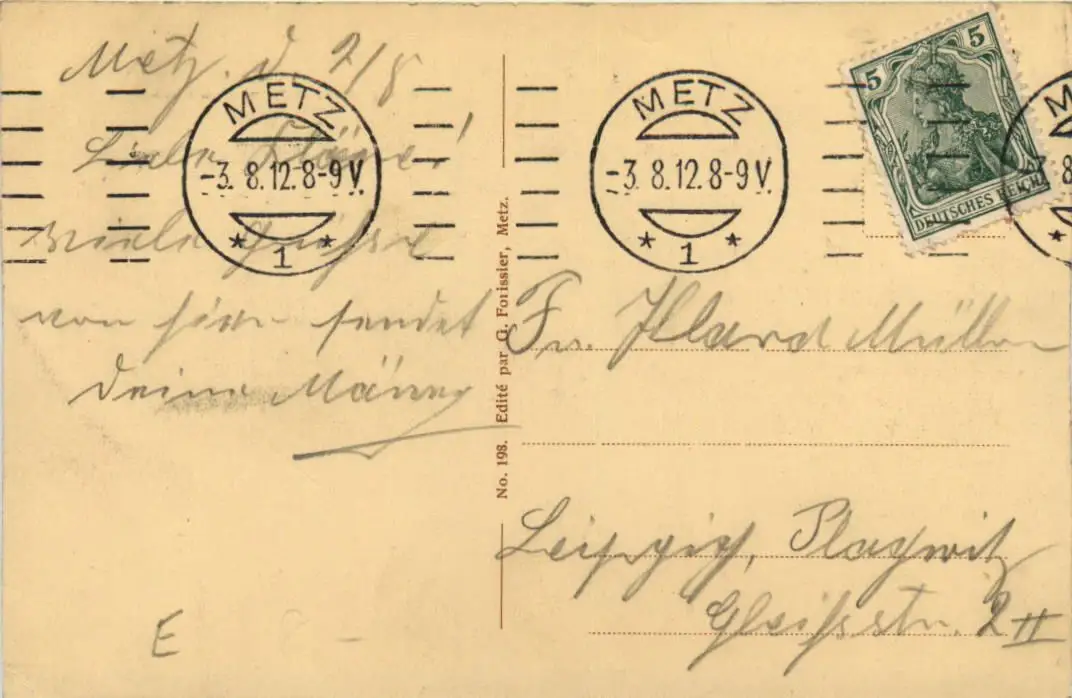 Metz. d. 2/8
Liebe
viele Grüsse
von hier sendet
Deine
METZ
-3. 8.12. 8-9 V.
* 1 *
METZ
-3. 8.12. 8-9 V.
* 1 *
5 5
DEUTSCHES REICH
No. 198. Edité par G. Forissier, Metz.
Fr. Müller
Leipzig, Plagwitz
2 II
E